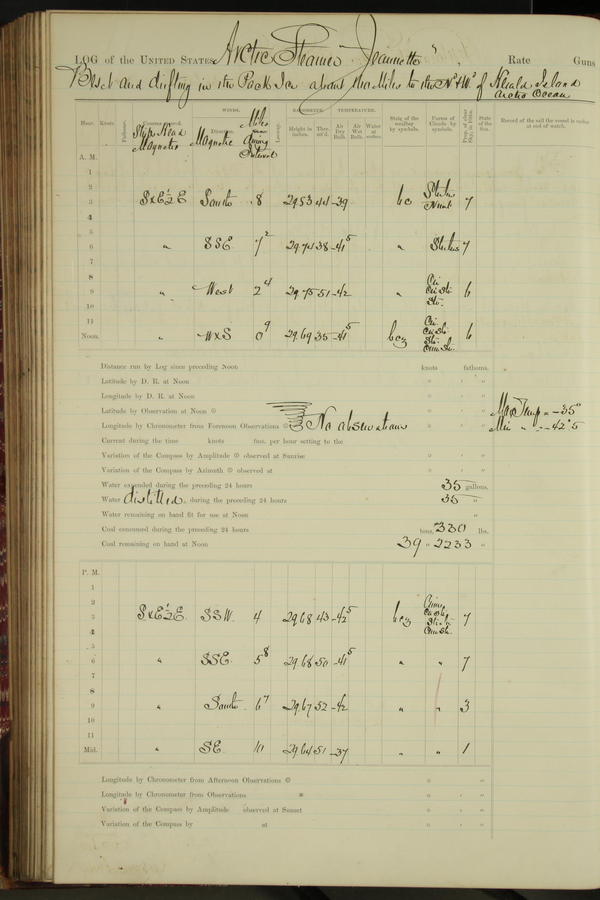 LOG of the UNITED STATES Arctic Steamer "Jeannette", Rate Guns
Beset and drifting in the Pack Ice about Miles to the N & W of Herald Island
Arctic Ocean
WINDS. BAROMETER. TEMPERATURE.
Hour. Knots. Fathoms. Courses steered. Ship's Head Magnetic Direction. Magnetic Miles during Interval Leeway. Height in inches. Ther. att'd. Air Dry Bulb. Air Wet Bulb. Water at surface. State of the weather by symbols. Forms of Clouds by symbols. Prop. of clear Sky, in 10ths. State of the Sea. Record of the sail the vessel is under at end of watch.
A. M.
1
2
3 SxE½E South 8 29.53 44 -39 bc Stratus 7
4
5
6 " SSE 7² 29.74 38 -41⁵ " Stratus 7
7
8
9 " West 2⁴ 29.75 51 -42 " Cir. Cir. St. Str. 6
10
11
Noon. " WxS 0⁹ 29.69 35 -41⁵ bcz Cir. Cir. St. Str. Cum. St. 6
Distance run by Log since preceding Noon knots fathoms.
Latitude by D. R. at Noon ° ' "
Longitude by D. R. at Noon ° ' "
Latitude by Observation at Noon ° ' " Max Temp = -35°
Longitude by Chronometer from Forenoon Observations No observations ° ' " Min " = -42°5
Current during the time knots fms. per hour setting to the
Variation of the Compass by Amplitude observed at Sunrise ° ' "
Variation of the Compass by Azimuth observed at ° ' "
Water expended during the preceding 24 hours 35 gallons.
Water distilled, during the preceding 24 hours 35 "
Water remaining on hand fit for use at Noon "
Coal consumed during the preceding 24 hours tons, 330 lbs.
Coal remaining on hand at Noon 39 " 2233 "
P. M.
1
2
3 SxE½E SSW. 4 29.68 43 -42⁵ bcz 7
4
5
6 " SSE. 5⁸ 29.68 50 -41⁵ " " 7
7
8
9 " South 6⁷ 29.67 52 -42 " " 3
10
11
Mid. " SE 10 29.64 51 -37 " " 1
Longitude by Chronometer from Afternoon Observations ° ' "
Longitude by Chronometer from Observations ° ' "
Variation of the Compass by Amplitude observed at Sunset ° ' "
Variation of the Compass by at ° ' "